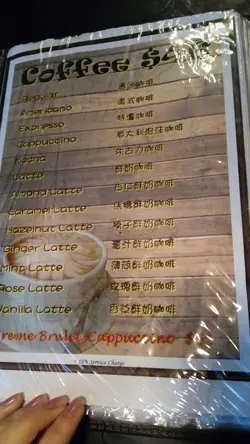 Coffee $4
Regular 美式咖啡
Americano 美式咖啡
Expresso 特濃咖啡
Cappuccino 意大利泡沫咖啡
Mocha 朱古力咖啡
Latte 鮮奶咖啡
Almond Latte 杏仁鮮奶咖啡
Caramel Latte 焦糖鮮奶咖啡
Hazelnut Latte 榛子鮮奶咖啡
Ginger Latte 薑汁鮮奶咖啡
Mint Latte 薄荷鮮奶咖啡
Rose Latte 玫瑰鮮奶咖啡
Vanilla Latte 香草鮮奶咖啡
Creme Brulee Cappuccino $
+ 10% Service Charge